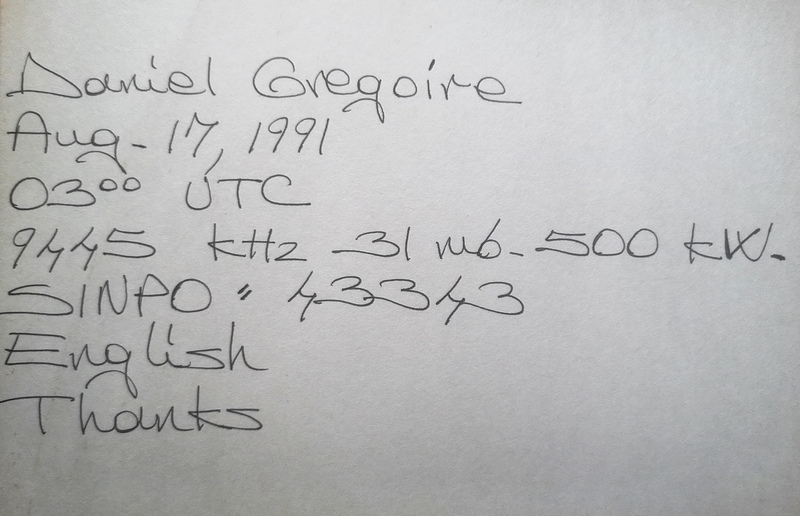 Daniel Gregoire
Aug. 17, 1991
03⁰⁰ UTC
9445 kHz - 31 mb. - 500 kW.
SINPO " 43343
English
Thanks